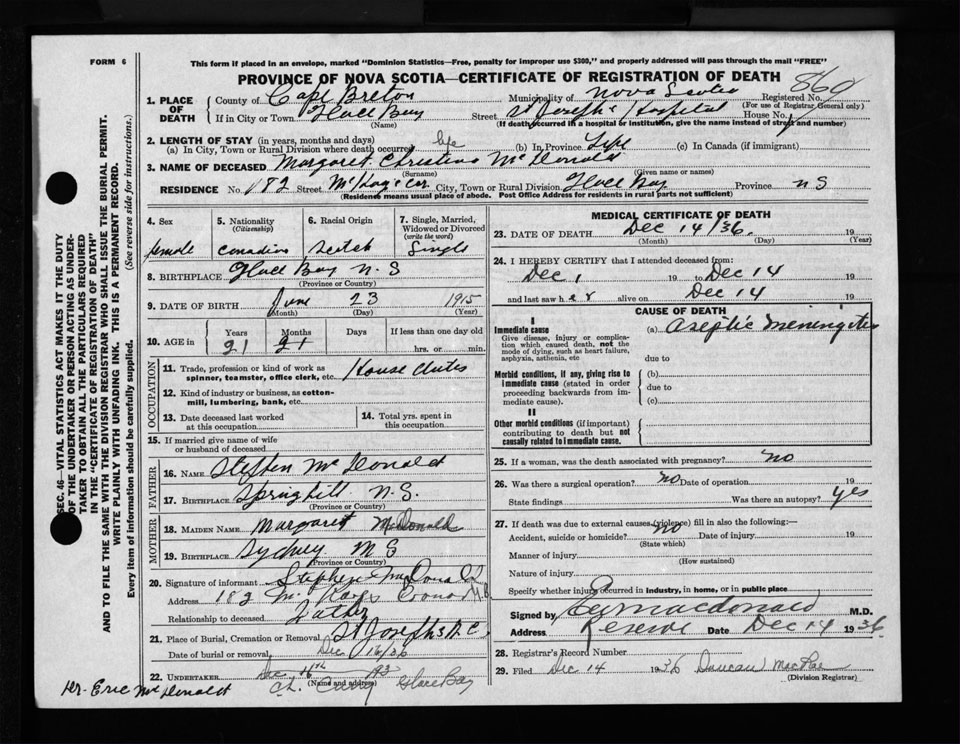 FORM 6
This form if placed in an envelope, marked "Dominion Statistics—Free, penalty for improper use $300," and properly addressed will pass through the mail "FREE"
PROVINCE OF NOVA SCOTIA—CERTIFICATE OF REGISTRATION OF DEATH
1. PLACE OF DEATH
County of Cape Breton Municipality of Nova Scotia Registered No. 869
(For use of Registrar General only)
If in City or Town Glace Bay Street St Josephs Hospital House No.
(Name) (If death occurred in a hospital or institution, give the name instead of street and number)
2. LENGTH OF STAY (in years, months and days)
(a) In City, Town or Rural Division where death occurred life (b) In Province Life (c) In Canada (if immigrant)
3. NAME OF DECEASED Margaret Christina McDonald
(Surname) (Given name or names)
RESIDENCE No. 182 Street McKay's Cor City, Town or Rural Division Glace Bay Province N S
(Residence means usual place of abode. Post Office Address for residents in rural parts not sufficient)
4. Sex
female
5. Nationality
(Citizenship)
Canadian
6. Racial Origin
Scotch
7. Single, Married, Widowed or Divorced
(write the word)
Single
8. BIRTHPLACE Glace Bay N. S
(Province or Country)
9. DATE OF BIRTH June 23 1915
(Month) (Day) (Year)
10. AGE in
Years Months Days If less than one day old
21 21 hrs. or min.
OCCUPATION
11. Trade, profession or kind of work as spinner, teamster, office clerk, etc. House duties
12. Kind of industry or business, as cotton-mill, lumbering, bank, etc.
13. Date deceased last worked at this occupation
14. Total yrs. spent in this occupation
15. If married give name of wife or husband of deceased
FATHER
16. NAME Steffen McDonald
17. BIRTHPLACE Springhill N.S.
(Province or Country)
MOTHER
18. MAIDEN NAME Margaret McDonald
19. BIRTHPLACE Sydney N S
(Province or Country)
20. Signature of informant Stephen McDonald
Address 182 McKays Corner
Relationship to deceased Father
21. Place of Burial, Cremation or Removal St Josephs R C
Date of burial or removal Dec 16/36
22. UNDERTAKER Dec 16th 193
(Name and address)
Glace Bay
Dr. Eric McDonald
MEDICAL CERTIFICATE OF DEATH
23. DATE OF DEATH Dec 14/36. 19
(Month) (Day) (Year)
24. I HEREBY CERTIFY that I attended deceased from:
Dec 1 19 to Dec 14 19
and last saw her alive on Dec 14 19
CAUSE OF DEATH
I
Immediate cause (a) Aseptic Meningitis
Give disease, injury or complication which caused death, not the mode of dying, such as heart failure, asphyxia, asthenia, etc
due to
Morbid conditions, if any, giving rise to immediate cause (stated in order proceeding backwards from immediate cause).
(b)
due to
(c)
II
Other morbid conditions (if important) contributing to death but not causally related to immediate cause.
25. If a woman, was the death associated with pregnancy? no
26. Was there a surgical operation? no Date of operation 19
State findings Was there an autopsy? yes
27. If death was due to external causes (violence) fill in also the following:—
Accident, suicide or homicide? no Date of injury 19
(State which)
Manner of injury
(How sustained)
Nature of injury
Specify whether injury occurred in industry, in home, or in public place
Signed by Macdonald M.D.
Address Reserve Date Dec 14 1936
28. Registrar's Record Number
29. Filed Dec 14 1936 Duncan MacRae
(Division Registrar)
SEC. 46—VITAL STATISTICS ACT MAKES IT THE DUTY
OF THE UNDERTAKER OR PERSON ACTING AS UNDER-
TAKER TO OBTAIN ALL THE PARTICULARS REQUIRED
IN THE "CERTIFICATE OF REGISTRATION OF DEATH"
AND TO FILE THE SAME WITH THE DIVISION REGISTRAR WHO SHALL ISSUE THE BURIAL PERMIT.
WRITE PLAINLY WITH UNFADING INK. THIS IS A PERMANENT RECORD.
Every item of information should be carefully supplied. (See reverse side for instructions.)